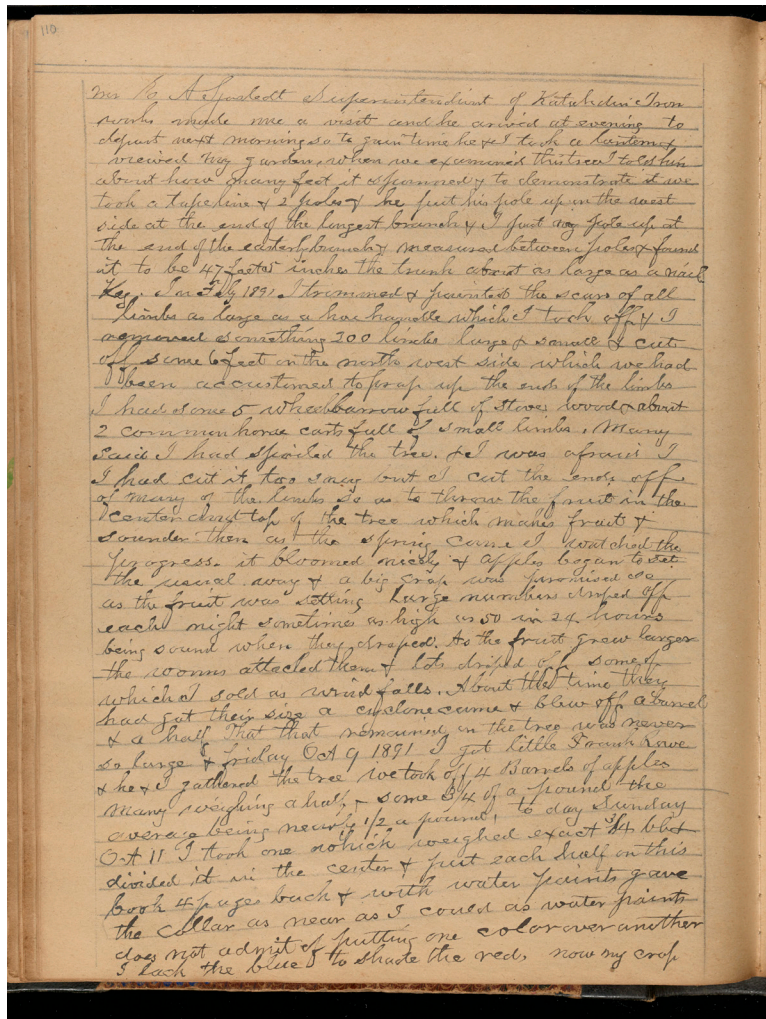 110
Mr E A Superintendint of Katahdin Iron
works made me a visit and he arived at evening to
depart next morning so to gain time he & I took a lantern &
viewed my garden, when we examined this tree I told him
about how many feet it spanned & to demonstrate it we
took a tape line & 2 poles & he put his pole up on the west
side at the end of the longest branch & I put my pole up at
the end of the easterly branch & measured between poles & found
it to be 47 feet 5 inches the trunk about as large as a nail
Keg. In 1891 I trimmed & painted the scars of all
limbs as large as a hoe handle which I took off & I
removed something 200 limbs large & small & cut
off some 6 feet on the north west side which we had
been accustomed to prop up the ends of the limbs
I had some 5 wheelbarrow full of stove wood & about
2 common horse carts full of small limbs. Many
said I had spoiled the tree. & I was afraid I
I had cut it too snug but I cut the ends off
of many of the limbs so as to throw the fruit in the
center and top of the tree which makes fruit &
sounder then as the spring came I watched the
progress. it bloomed nicely & apples began to set
the usual way & a big crop was promised
as the fruit was setting large numbers droped off
each night sometimes as high as 50 in 24 hours
being sound when they droped. As the fruit grew larger
the worms attacked them & lots droped off some of
which I sold as wind falls. About the time they
had got their size a cyclone came & blew off a barrel
& a half That that remained on the tree was never
so large & friday Oct 9 1891 I got little Frank Rowe
& he & I gathered the tree we took off 4 Barrels of apples
many weighing a half & some 3/4 of a pound the
average being nearly 1/2 a pound, to day Sunday
Oct 11 I took one which weighed exact 3/4 lb &
divided it in the center & put each half on this
book 4 pages back & with water paints gave
the collar as near as I could as water paints
does not admit of putting one color over another
I lack the blue to shade the red, now my crop